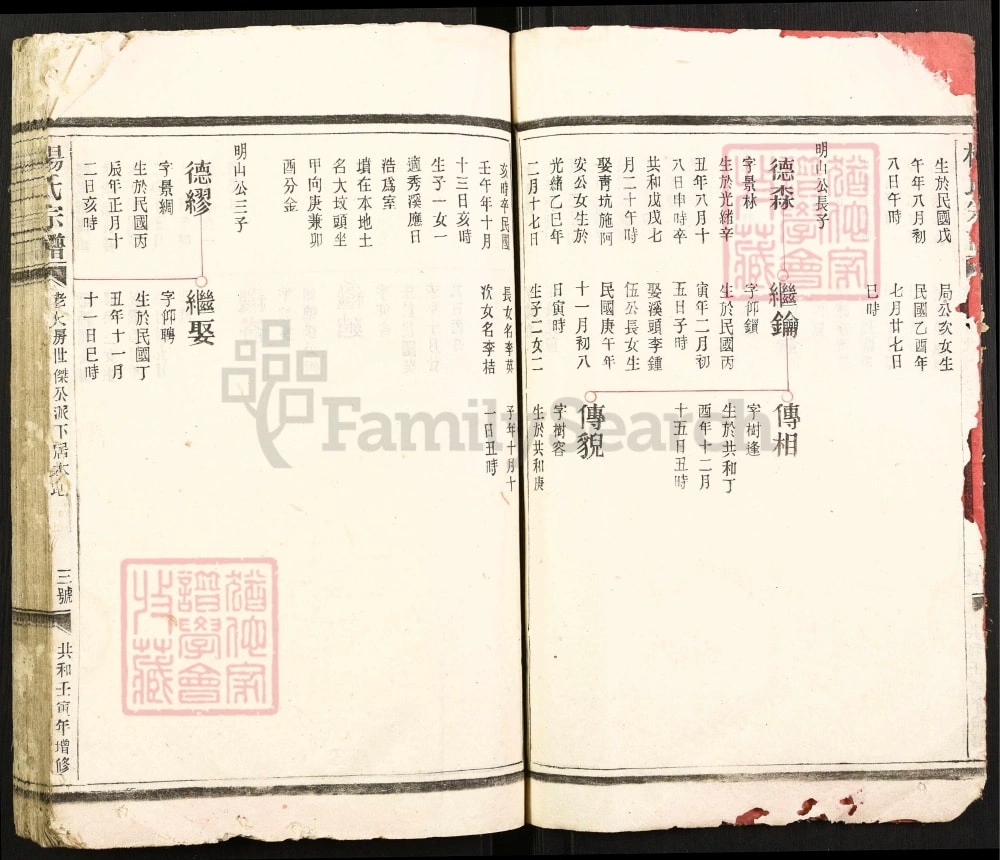 生於民國戊
午年八月初
八日午時
局公次女生
民國乙酉年
七月廿七日
巳時
明山公長子
德森
字景林
生於光緒辛
丑年八月十
八日申時卒
共和戊戌七
月二十午時
娶青坑施阿
安公女生於
光緒乙巳年
二月十七日
繼鑰
字仰鎖
生於民國丙
寅年二月初
五日子時
娶溪頭李鍾
伍公長女生
民國庚午年
十一月初八
日寅時
生子二女二
傳相
字樹逢
生於共和丁
酉年十二月
十五日丑時
傳貌
字樹容
生於共和庚
亥時卒民國
壬午年十月
十三日亥時
生子一女一
適秀溪應日
浩爲室
墳在本地土
名大坟頭坐
甲向庚兼卯
酉分金
長女名李英
次女名李桔
子年十月十
一日丑時
明山公三子
德繆
字景綢
生於民國丙
辰年正月十
二日亥時
繼娶
字仰聘
生於民國丁
丑年十一月
十一日巳時
楊氏宗譜
老大房世傑公派下居本地
三號
共和壬寅年增修
FamilySearch
譜學會
收藏
譜學會
收藏